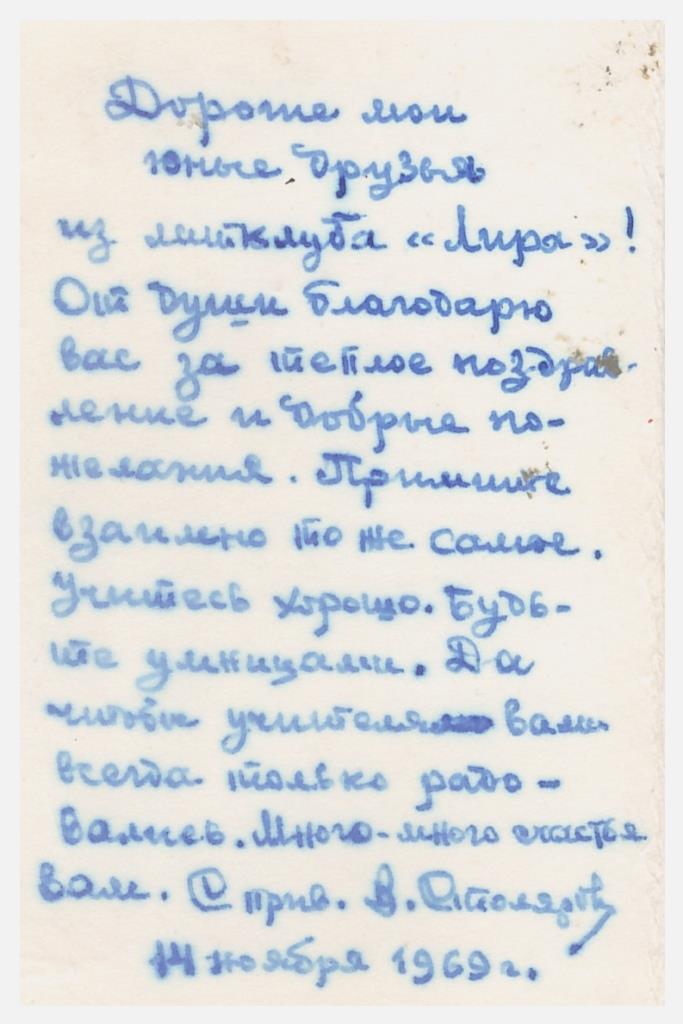 Дорогие мои
юные друзья
из литклуба «Лира»!
От души благодарю
вас за теплое поздрав-
ление и добрые по-
желания. Примите
взаимно то же самое.
Учитесь хорошо. Будь-
те умницами. Да
чтобы учителя вами
всегда только радо-
вались. Много-много счастья
вам. С прив. В. Столяров
14 ноября 1969 г.